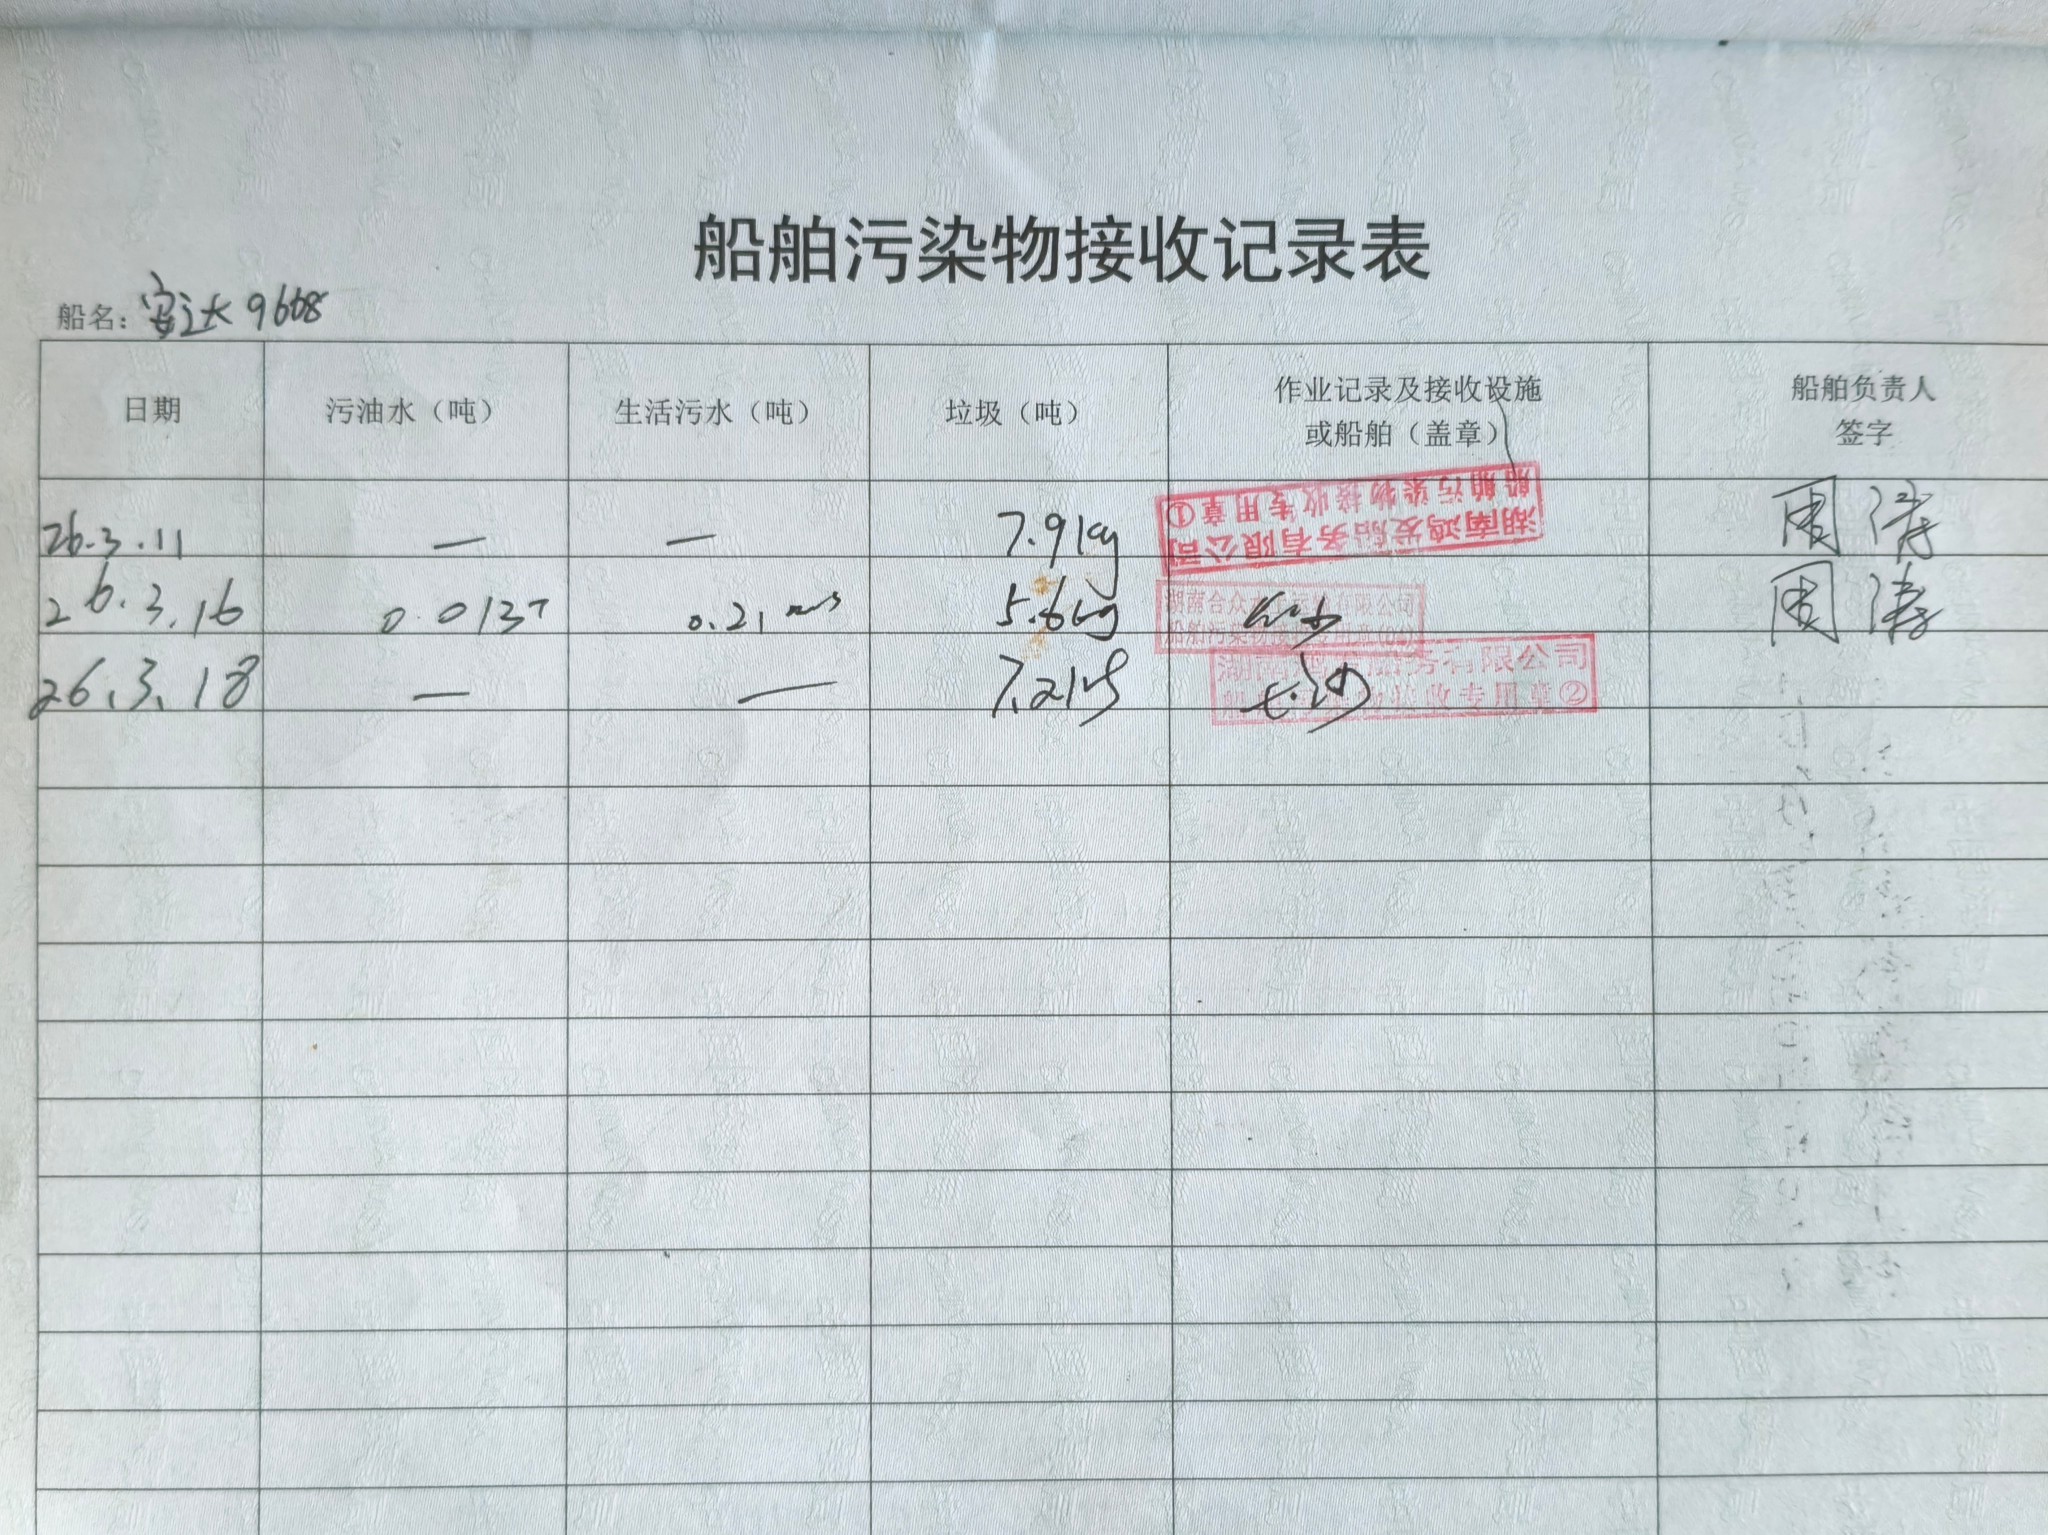 船舶污染物接收记录表
船名：安达9668
日期 污油水（吨） 生活污水（吨） 垃圾（吨） 作业记录及接收设施或船舶（盖章） 船舶负责人签字
26.3.11 — — 7.91kg 湖南鸿发船务有限公司 船舶污染物接收专用章① 周涛
26.3.16 0.013T 0.21 5.6kg 湖南合众水上运输有限公司 船舶污染物接收专用章 周涛
26.3.18 — — 7.21kg 湖南 船务有限公司 船舶污染物接收专用章② 长沙